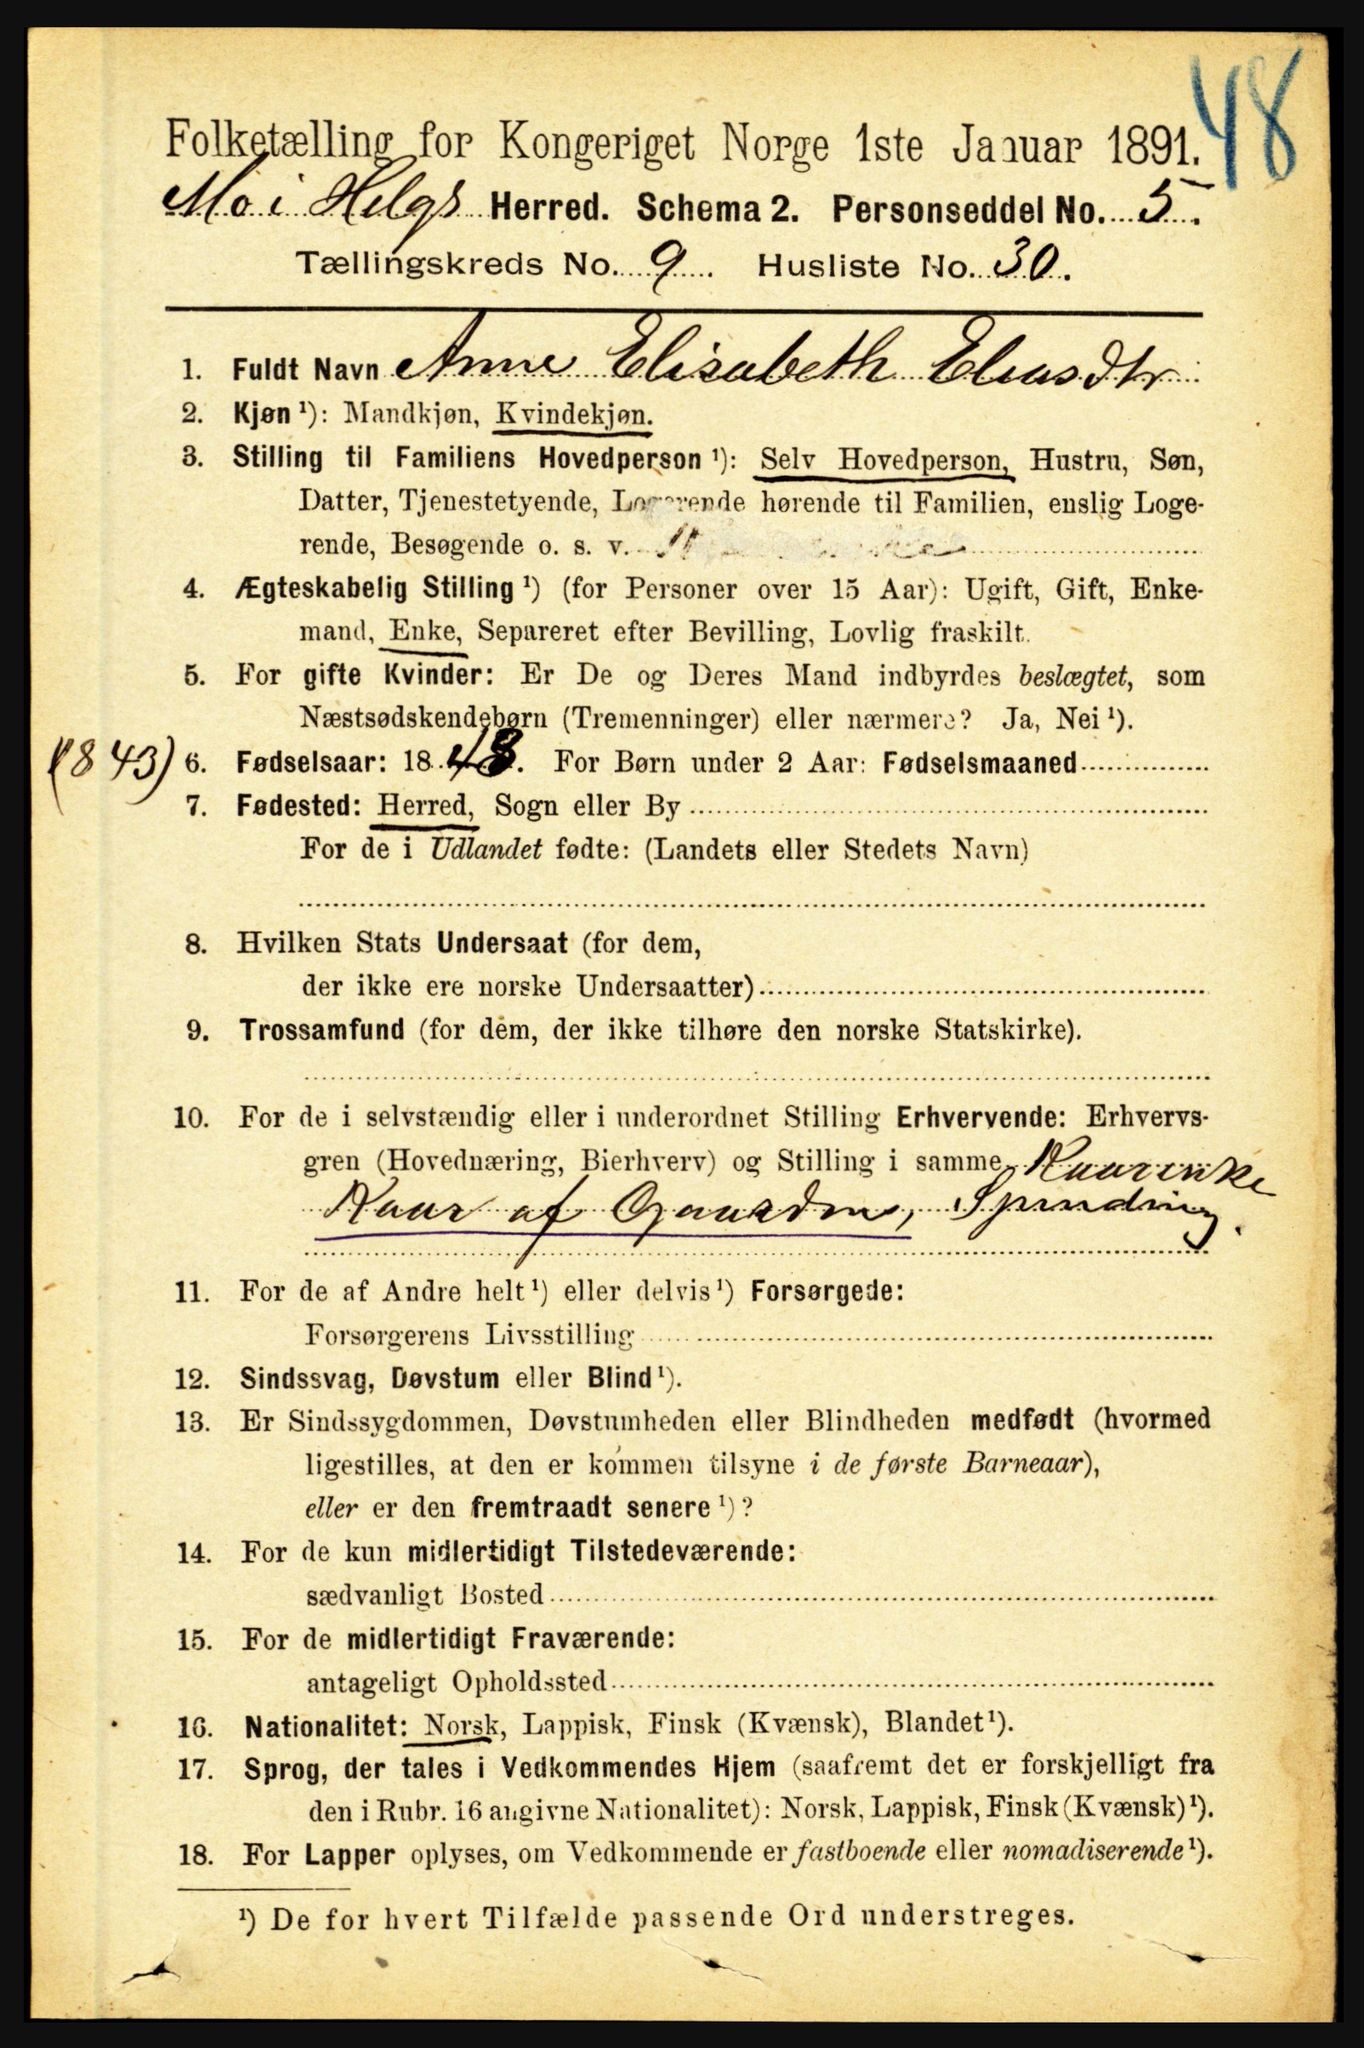 48
Folketælling for Kongeriget Norge 1ste Januar 1891.
Mo i Helgs Herred. Schema 2. Personseddel No. 5.
Tællingskreds No. 9. Husliste No. 30.
1. Fuldt Navn Anne Elisabeth Eliasdtr
2. Kjøn ¹): Mandkjøn, Kvindekjøn.
3. Stilling til Familiens Hovedperson ¹): Selv Hovedperson, Hustru, Søn,
Datter, Tjenestetyende, Logerende hørende til Familien, enslig Loge-
rende, Besøgende o. s. v.
4. Ægteskabelig Stilling ¹) (for Personer over 15 Aar): Ugift, Gift, Enke-
mand, Enke, Separeret efter Bevilling, Lovlig fraskilt.
5. For gifte Kvinder: Er De og Deres Mand indbyrdes beslægtet, som
Næstsødskendebørn (Tremenninger) eller nærmere? Ja, Nei ¹).
(1843) 6. Fødselsaar: 1843. For Børn under 2 Aar: Fødselsmaaned
7. Fødested: Herred, Sogn eller By
For de i Udlandet fødte: (Landets eller Stedets Navn)
8. Hvilken Stats Undersaat (for dem,
der ikke ere norske Undersaatter)
9. Trossamfund (for dem, der ikke tilhøre den norske Statskirke).
10. For de i selvstændig eller i underordnet Stilling Erhvervende: Erhvervs-
gren (Hovednæring, Bierhverv) og Stilling i samme Kaarenke
Kaar af Gaarden, Spinding.
11. For de af Andre helt ¹) eller delvis ¹) Forsørgede:
Forsørgerens Livsstilling
12. Sindssvag, Døvstum eller Blind ¹).
13. Er Sindssygdommen, Døvstumheden eller Blindheden medfødt (hvormed
ligestilles, at den er kommen tilsyne i de første Barneaar),
eller er den fremtraadt senere ¹)?
14. For de kun midlertidigt Tilstedeværende:
sædvanligt Bosted
15. For de midlertidigt Fraværende:
antageligt Opholdssted
16. Nationalitet: Norsk, Lappisk, Finsk (Kvænsk), Blandet ¹).
17. Sprog, der tales i Vedkommendes Hjem (saafremt det er forskjelligt fra
den i Rubr. 16 angivne Nationalitet): Norsk, Lappisk, Finsk (Kvænsk) ¹).
18. For Lapper oplyses, om Vedkommende er fastboende eller nomadiserende ¹).
¹) De for hvert Tilfælde passende Ord understreges.